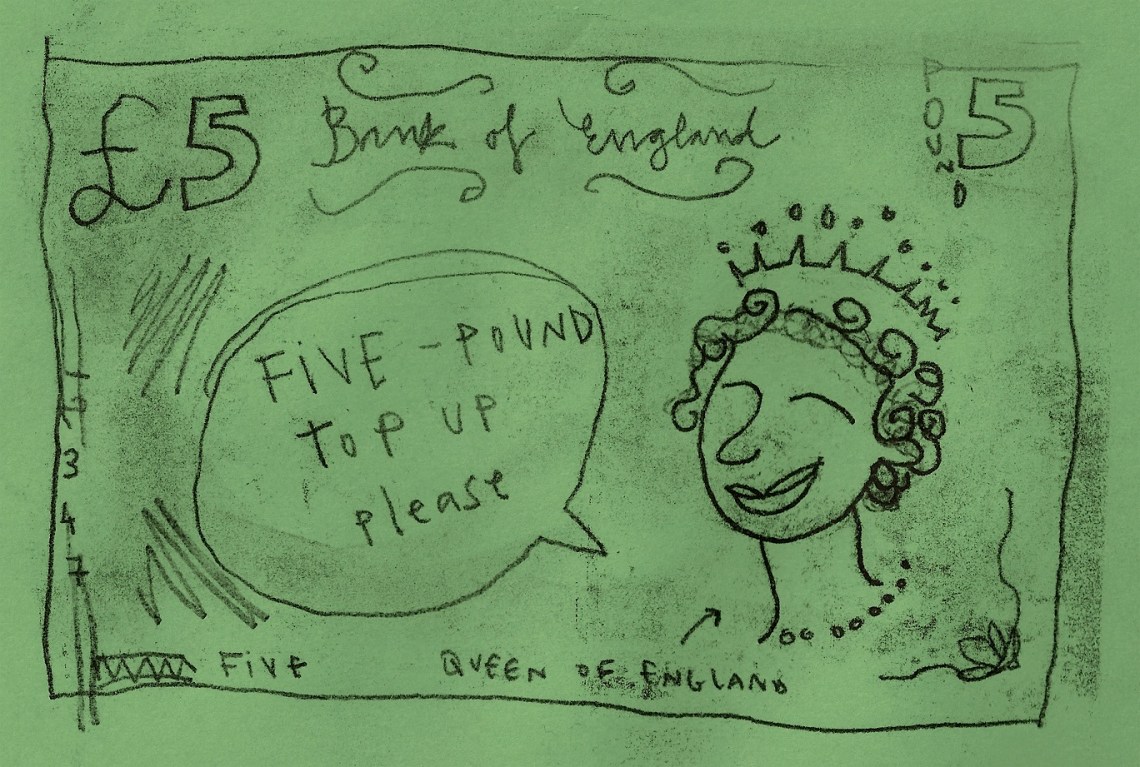 £5
Bank of England
5
POUND
FiVE - POUND
ToP UP
please
3
4
7
FiVE
QUEEN OF ENGLAND